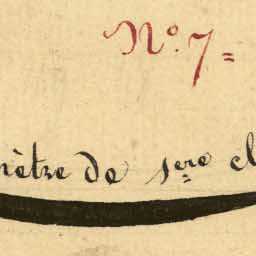 No. 7=
mètre de 1ere cl